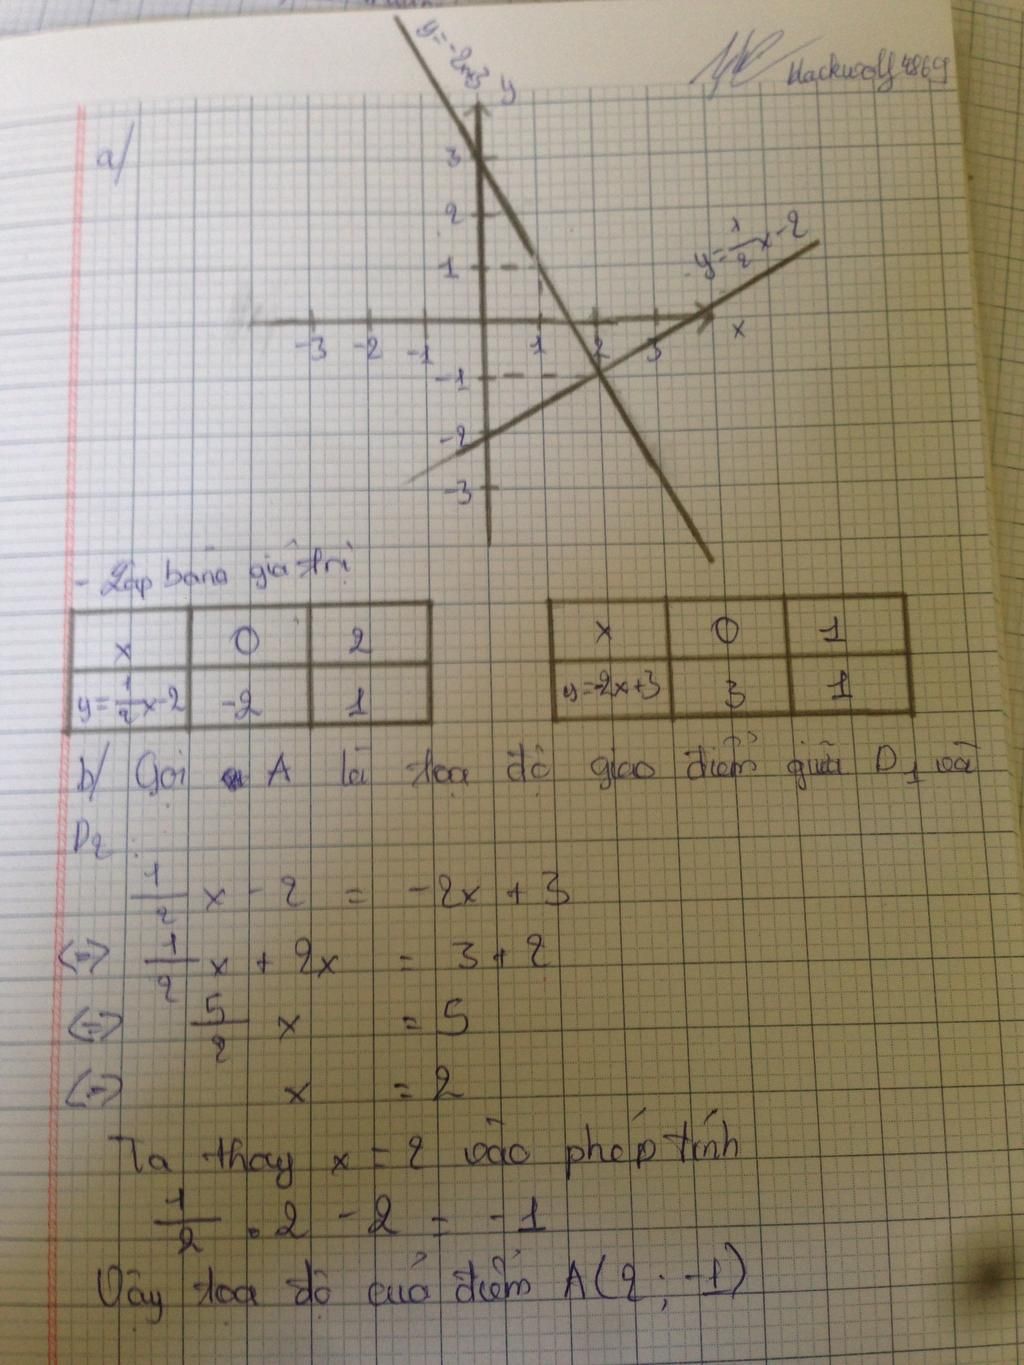 y=-2x+3
y
Hackwolf4869
a/
3
2
1
y=1/2x-2
-3 -2 -1 1 2 3 x
-1
-2
-3
- Lập bảng giá trị
x 0 2
y=1/2x-2 -2 1
x 0 1
y=-2x+3 3 1
b/ Gọi A là tọa độ giao điểm giữa D1 và
D2 :
1/2 x - 2 = -2x + 3
<=> 1/2 x + 2x = 3 + 2
<=> 5/2 x = 5
<=> x = 2
Ta thay x = 2 vào phép tính
1/2 . 2 - 2 = -1
Vậy tọa độ của điểm A(2 ; -1)